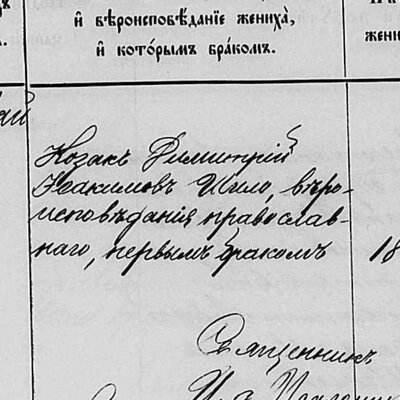 и вѣроисповѣданіе жениха̀,
и кото́рымъ бра́комъ.
жени
Козакъ Димитрій
Іоакимовъ Шило, вѣро-
исповѣданія православ-
наго, первымъ бракомъ
18
Священникъ